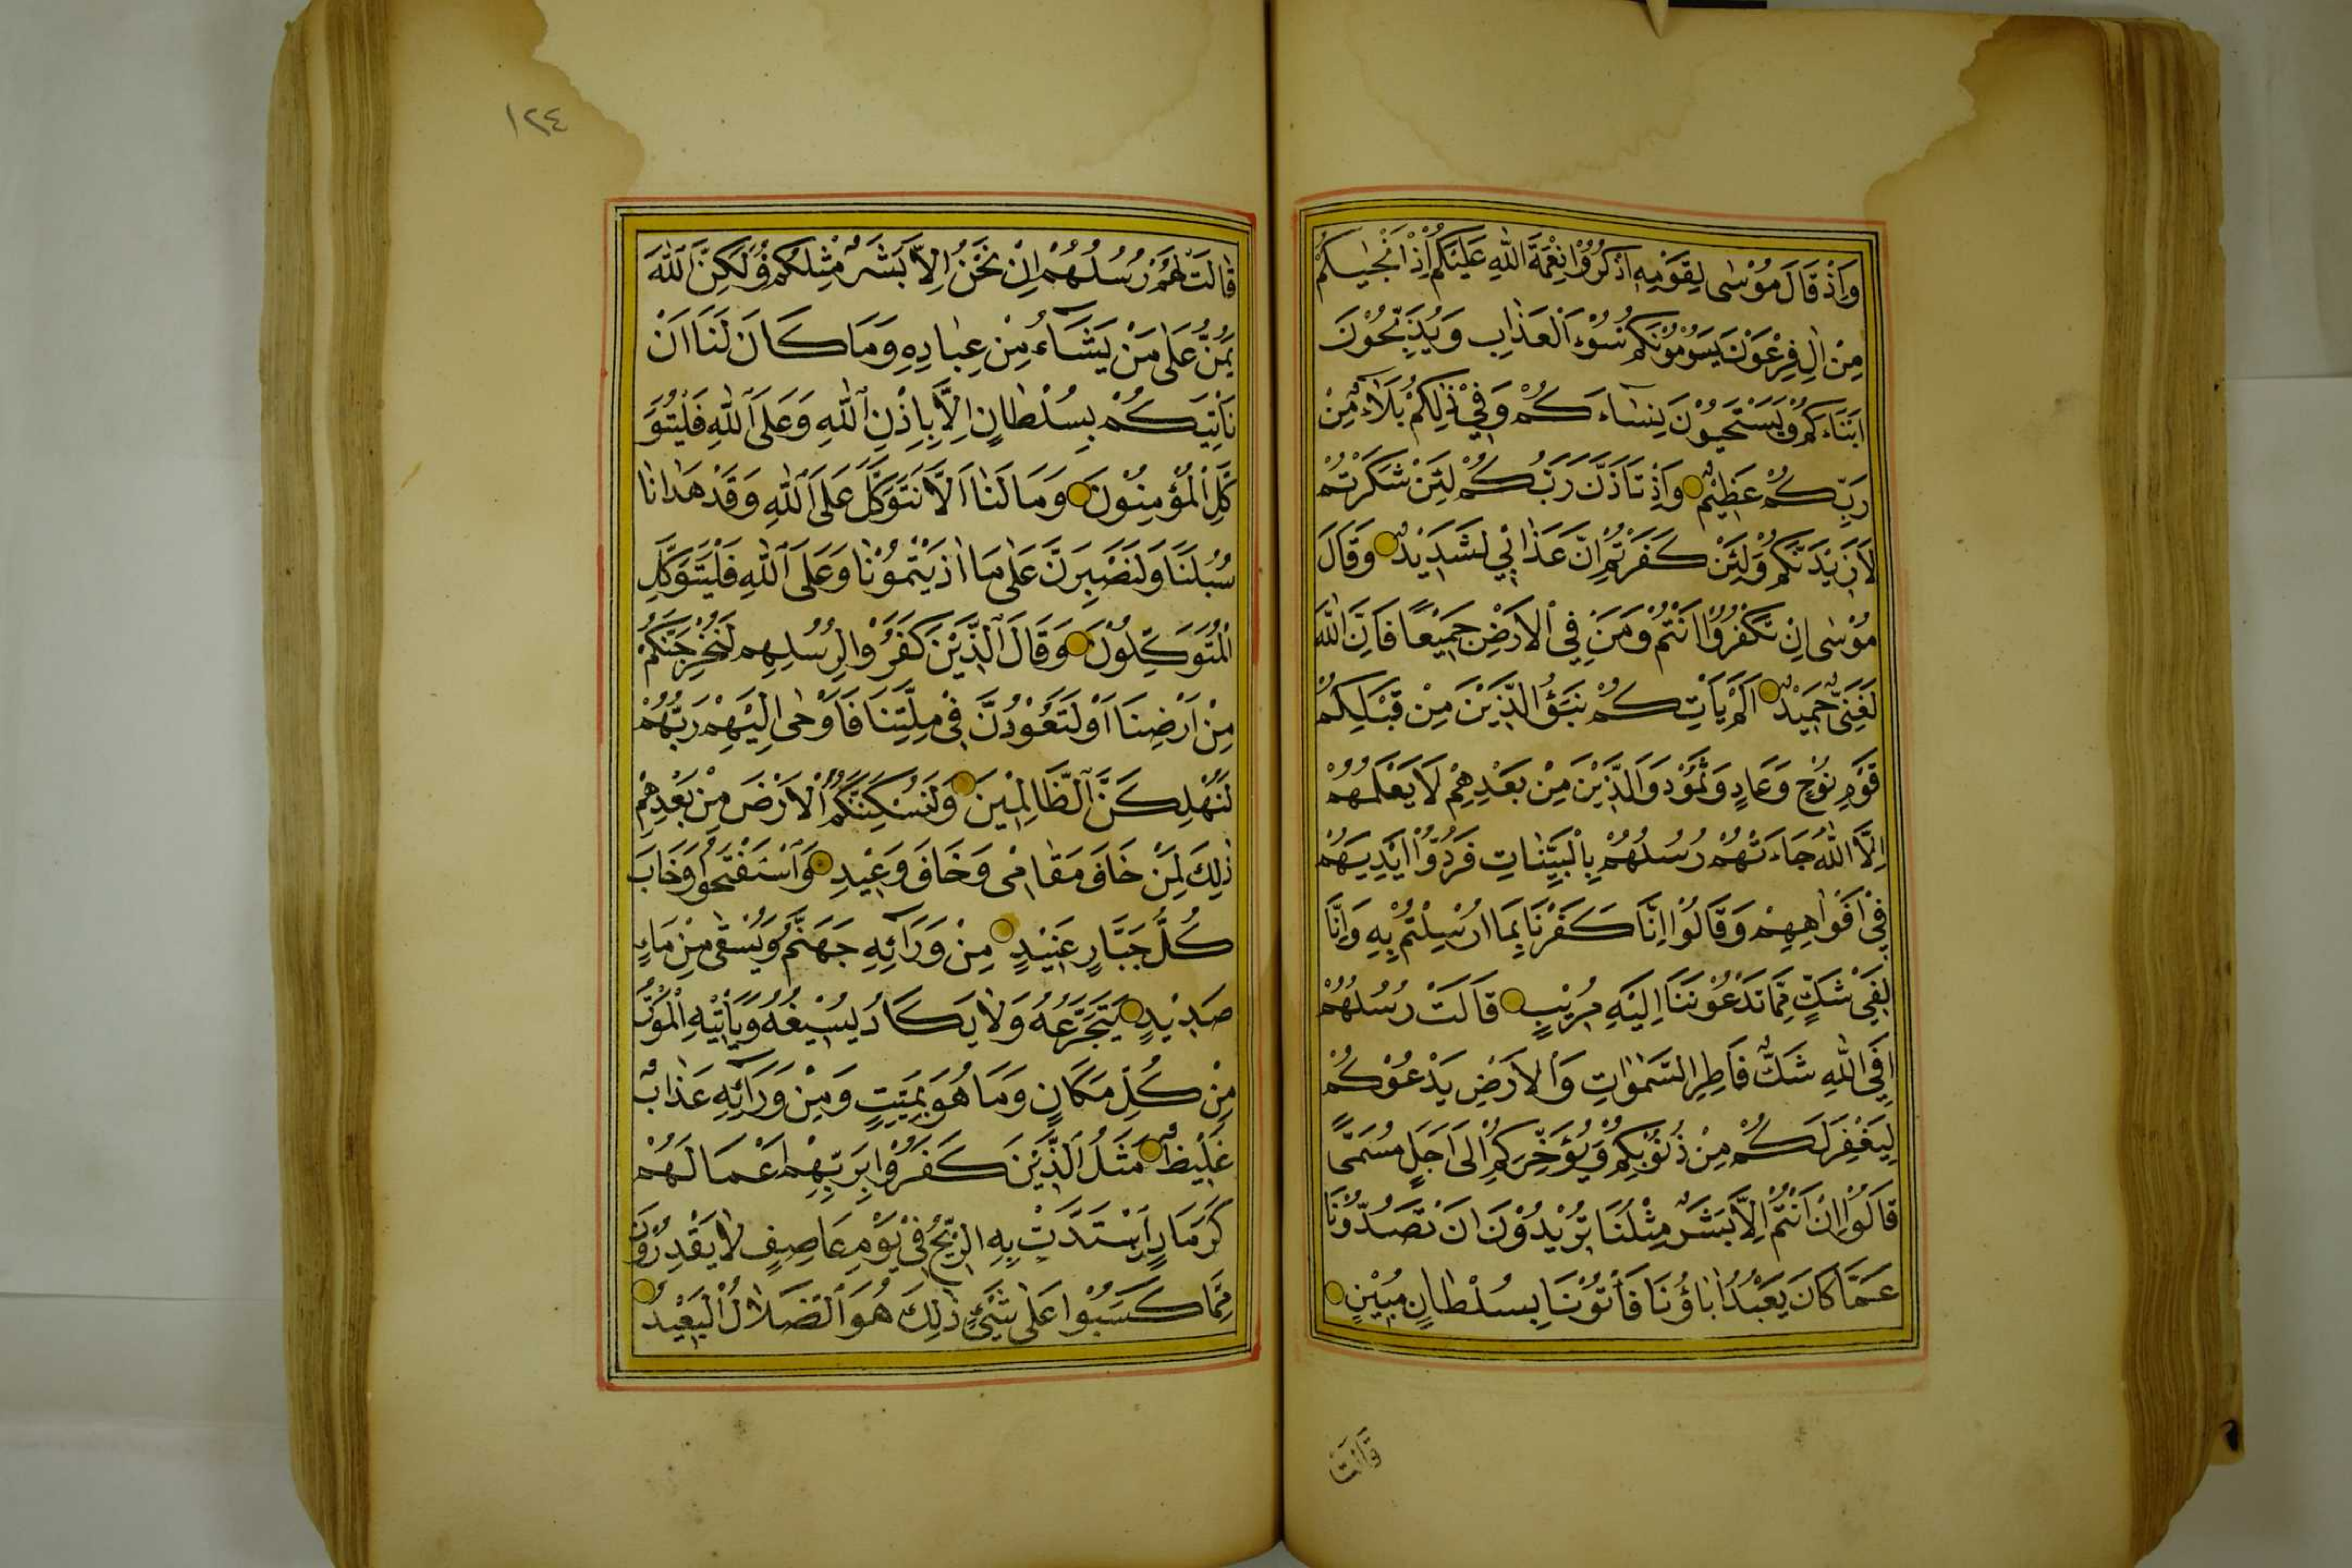 وَاِذْ قَالَ مُوْسٰى لِقَوْمِهِ اذْكُرُوْا نِعْمَةَ اللّٰهِ عَلَيْكُمْ اِذْ اَنْجٰيكُمْ
مِنْ اٰلِ فِرْعَوْنَ يَسُوْمُوْنَكُمْ سُوْءَ الْعَذَابِ وَيُذَبِّحُوْنَ
اَبْنَاءَكُمْ وَيَسْتَحْيُوْنَ نِسَاءَكُمْ وَفِيْ ذٰلِكُمْ بَلَاۤءٌ مِنْ
رَبِّكُمْ عَظِيْمٌ وَاِذْ تَاَذَّنَ رَبُّكُمْ لَئِنْ شَكَرْتُمْ
لَاَزِيْدَنَّكُمْ وَلَئِنْ كَفَرْتُمْ اِنَّ عَذَابِيْ لَشَدِيْدٌ وَقَالَ
مُوْسٰى اِنْ تَكْفُرُوْا اَنْتُمْ وَمَنْ فِي الْاَرْضِ جَمِيْعًا فَاِنَّ اللّٰهَ
لَغَنِيٌّ حَمِيْدٌ اَلَمْ يَاْتِكُمْ نَبَؤُ الَّذِيْنَ مِنْ قَبْلِكُمْ
قَوْمِ نُوْحٍ وَعَادٍ وَثَمُوْدَ وَالَّذِيْنَ مِنْ بَعْدِهِمْ لَا يَعْلَمُهُمْ
اِلَّا اللّٰهُ جَاءَتْهُمْ رُسُلُهُمْ بِالْبَيِّنَاتِ فَرَدُّوْا اَيْدِيَهُمْ
فِيْ اَفْوَاهِهِمْ وَقَالُوْا اِنَّا كَفَرْنَا بِمَا اُرْسِلْتُمْ بِهِ وَاِنَّا
لَفِيْ شَكٍّ مِمَّا تَدْعُوْنَنَا اِلَيْهِ مُرِيْبٍ قَالَتْ رُسُلُهُمْ
اَفِي اللّٰهِ شَكٌّ فَاطِرِ السَّمٰوَاتِ وَالْاَرْضِ يَدْعُوْكُمْ
لِيَغْفِرَ لَكُمْ مِنْ ذُنُوْبِكُمْ وَيُؤَخِّرَكُمْ اِلَى اَجَلٍ مُسَمًّى
قَالُوْا اِنْ اَنْتُمْ اِلَّا بَشَرٌ مِثْلُنَا تُرِيْدُوْنَ اَنْ تَصُدُّوْنَا
عَمَّا كَانَ يَعْبُدُ اٰبَاؤُنَا فَاْتُوْنَا بِسُلْطَانٍ مُبِيْنٍ
قَالَتْ
١٢٤
قَالَتْ لَهُمْ رُسُلُهُمْ اِنْ نَحْنُ اِلَّا بَشَرٌ مِثْلُكُمْ وَلٰكِنَّ اللّٰهَ
يَمُنُّ عَلَى مَنْ يَشَاۤءُ مِنْ عِبَادِهِ وَمَا كَانَ لَنَا اَنْ
نَاْتِيَكُمْ بِسُلْطَانٍ اِلَّا بِاِذْنِ اللّٰهِ وَعَلَى اللّٰهِ فَلْيَتَوَ
كَّلِ الْمُؤْمِنُوْنَ وَمَا لَنَا اَلَّا نَتَوَكَّلَ عَلَى اللّٰهِ وَقَدْ هَدٰانَا
سُبُلَنَا وَلَنَصْبِرَنَّ عَلٰى مَا اٰذَيْتُمُوْنَا وَعَلَى اللّٰهِ فَلْيَتَوَكَّلِ
الْمُتَوَكِّلُوْنَ وَقَالَ الَّذِيْنَ كَفَرُوْا لِرُسُلِهِمْ لَنُخْرِجَنَّكُمْ
مِنْ اَرْضِنَا اَوْ لَتَعُوْدُنَّ فِيْ مِلَّتِنَا فَاَوْحٰى اِلَيْهِمْ رَبُّهُمْ
لَنُهْلِكَنَّ الظَّالِمِيْنَ وَلَنُسْكِنَنَّكُمُ الْاَرْضَ مِنْ بَعْدِهِمْ
ذٰلِكَ لِمَنْ خَافَ مَقَامِيْ وَخَافَ وَعِيْدِ وَاسْتَفْتَحُوْا وَخَابَ
كُلُّ جَبَّارٍ عَنِيْدٍ مِنْ وَرَاۤئِهِ جَهَنَّمُ وَيُسْقٰى مِنْ مَاءٍ
صَدِيْدٍ يَتَجَرَّعُهُ وَلَا يَكَادُ يُسِيْغُهُ وَيَاْتِيْهِ الْمَوْتُ
مِنْ كُلِّ مَكَانٍ وَمَا هُوَ بِمَيِّتٍ وَمِنْ وَرَاۤئِهِ عَذَابٌ
غَلِيْظٌ مَثَلُ الَّذِيْنَ كَفَرُوْا بِرَبِّهِمْ اَعْمَالُهُمْ
كَرَمَادٍ اشْتَدَّتْ بِهِ الرِّيْحُ فِيْ يَوْمٍ عَاصِفٍ لَا يَقْدِرُوْنَ
مِمَّا كَسَبُوْا عَلٰى شَيْءٍ ذٰلِكَ هُوَ الضَّلَالُ الْبَعِيْدُ